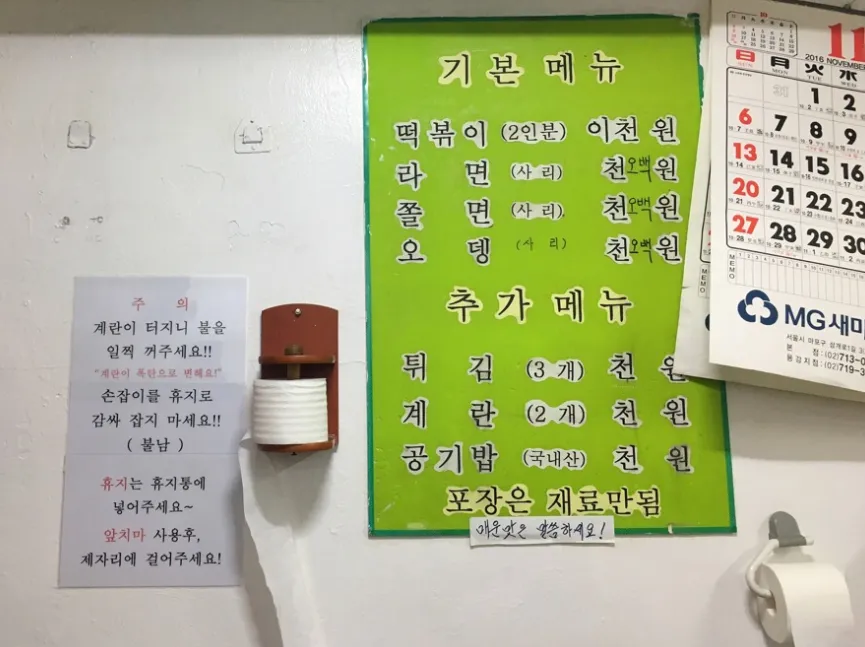 주 의
계란이 터지니 불을
일찍 꺼주세요!!
"계란이 폭탄으로 변해요!"
손잡이를 휴지로
감싸 잡지 마세요!!
( 불남 )
휴지는 휴지통에
넣어주세요~
앞치마 사용후,
제자리에 걸어주세요!
기본 메뉴
떡볶이 (2인분) 이천 원
라 면 (사리) 천오백원
쫄 면 (사리) 천오백원
오 뎅 (사 리) 천오백원
추가메뉴
튀 김 (3 개) 천 원
계 란 (2 개) 천 원
공기밥 (국내산) 천 원
포장은 재료만됨
매운맛은 말씀하세요!
11
2016 NOVEMBER
日 月 火 水
SUN MON TUE
31 1 2
6 7 8 9
13 14 15 16
20 21 22 23
27 28 29 30
MEMO
MEMO
MG새마
서울시 마포구
본 점 : (02)713-0
용강지점 : (02)719-3